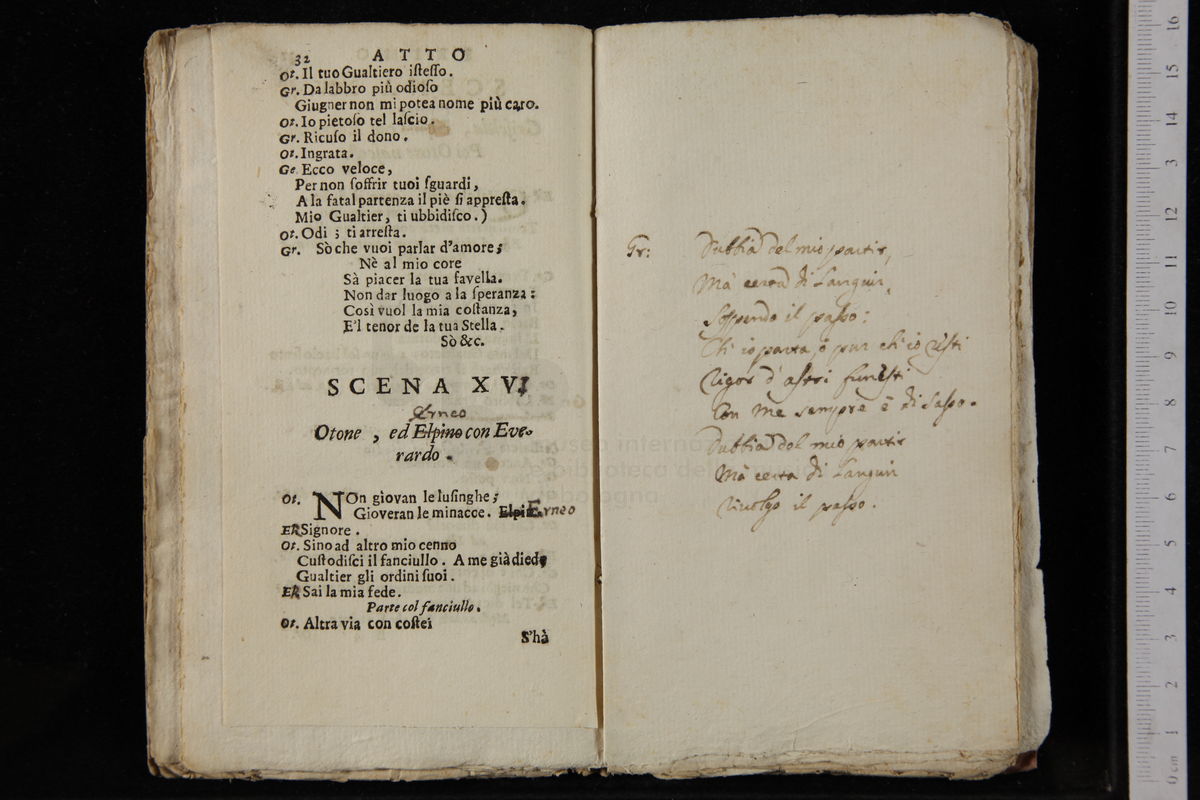 32 ATTO
Ot. Il tuo Gualtiero iſteſſo.
Gr. Da labbro più odioſo
Giugner non mi potea nome più caro.
Ot. Io pietoſo tel laſcio.
Gr. Ricuſo il dono.
Ot. Ingrata.
Gr. Ecco veloce,
Per non ſoffrir tuoi ſguardi,
A la fatal partenza il piè ſi appreſta.
Mio Gualtier, ti ubbidiſco.)
Ot. Odi; ti arreſta.
Gr. Sò che vuoi parlar d'amore;
Nè al mio core
Sà piacer la tua favella.
Non dar luogo a la ſperanza:
Così vuol la mia coſtanza,
E'l tenor de la tua Stella.
Sò &c.
SCENA XVI
Erneo
Otone, ed Elpino con Eve-
rardo.
Ot. NOn giovan le luſinghe;
Gioveran le minacce. Erneo
ER Signore.
Ot. Sino ad altro mio cenno
Cuſtodiſci il fanciullo. A me già diede
Gualtier gli ordini ſuoi.
ER Sai la mia fede.
Parte col fanciullo.
Ot. Altra via con coſtei
S'hà
Gr: Dubbia del mio partir,
Mà certa di languir,
Soſpendo il paſſo:
Ch'io parta, ò pur ch'io reſti
Rigor d'aſtri funeſti
Con me sempre è di Saſſo.
Dubbia del mio partir
Mà certa di languir
Rivolgo il paſſo.
museo internaz
e biblioteca del
bologna
0 cm 1 2 3 4 5 6 7 8 9 10 11 12 13 14 15 16